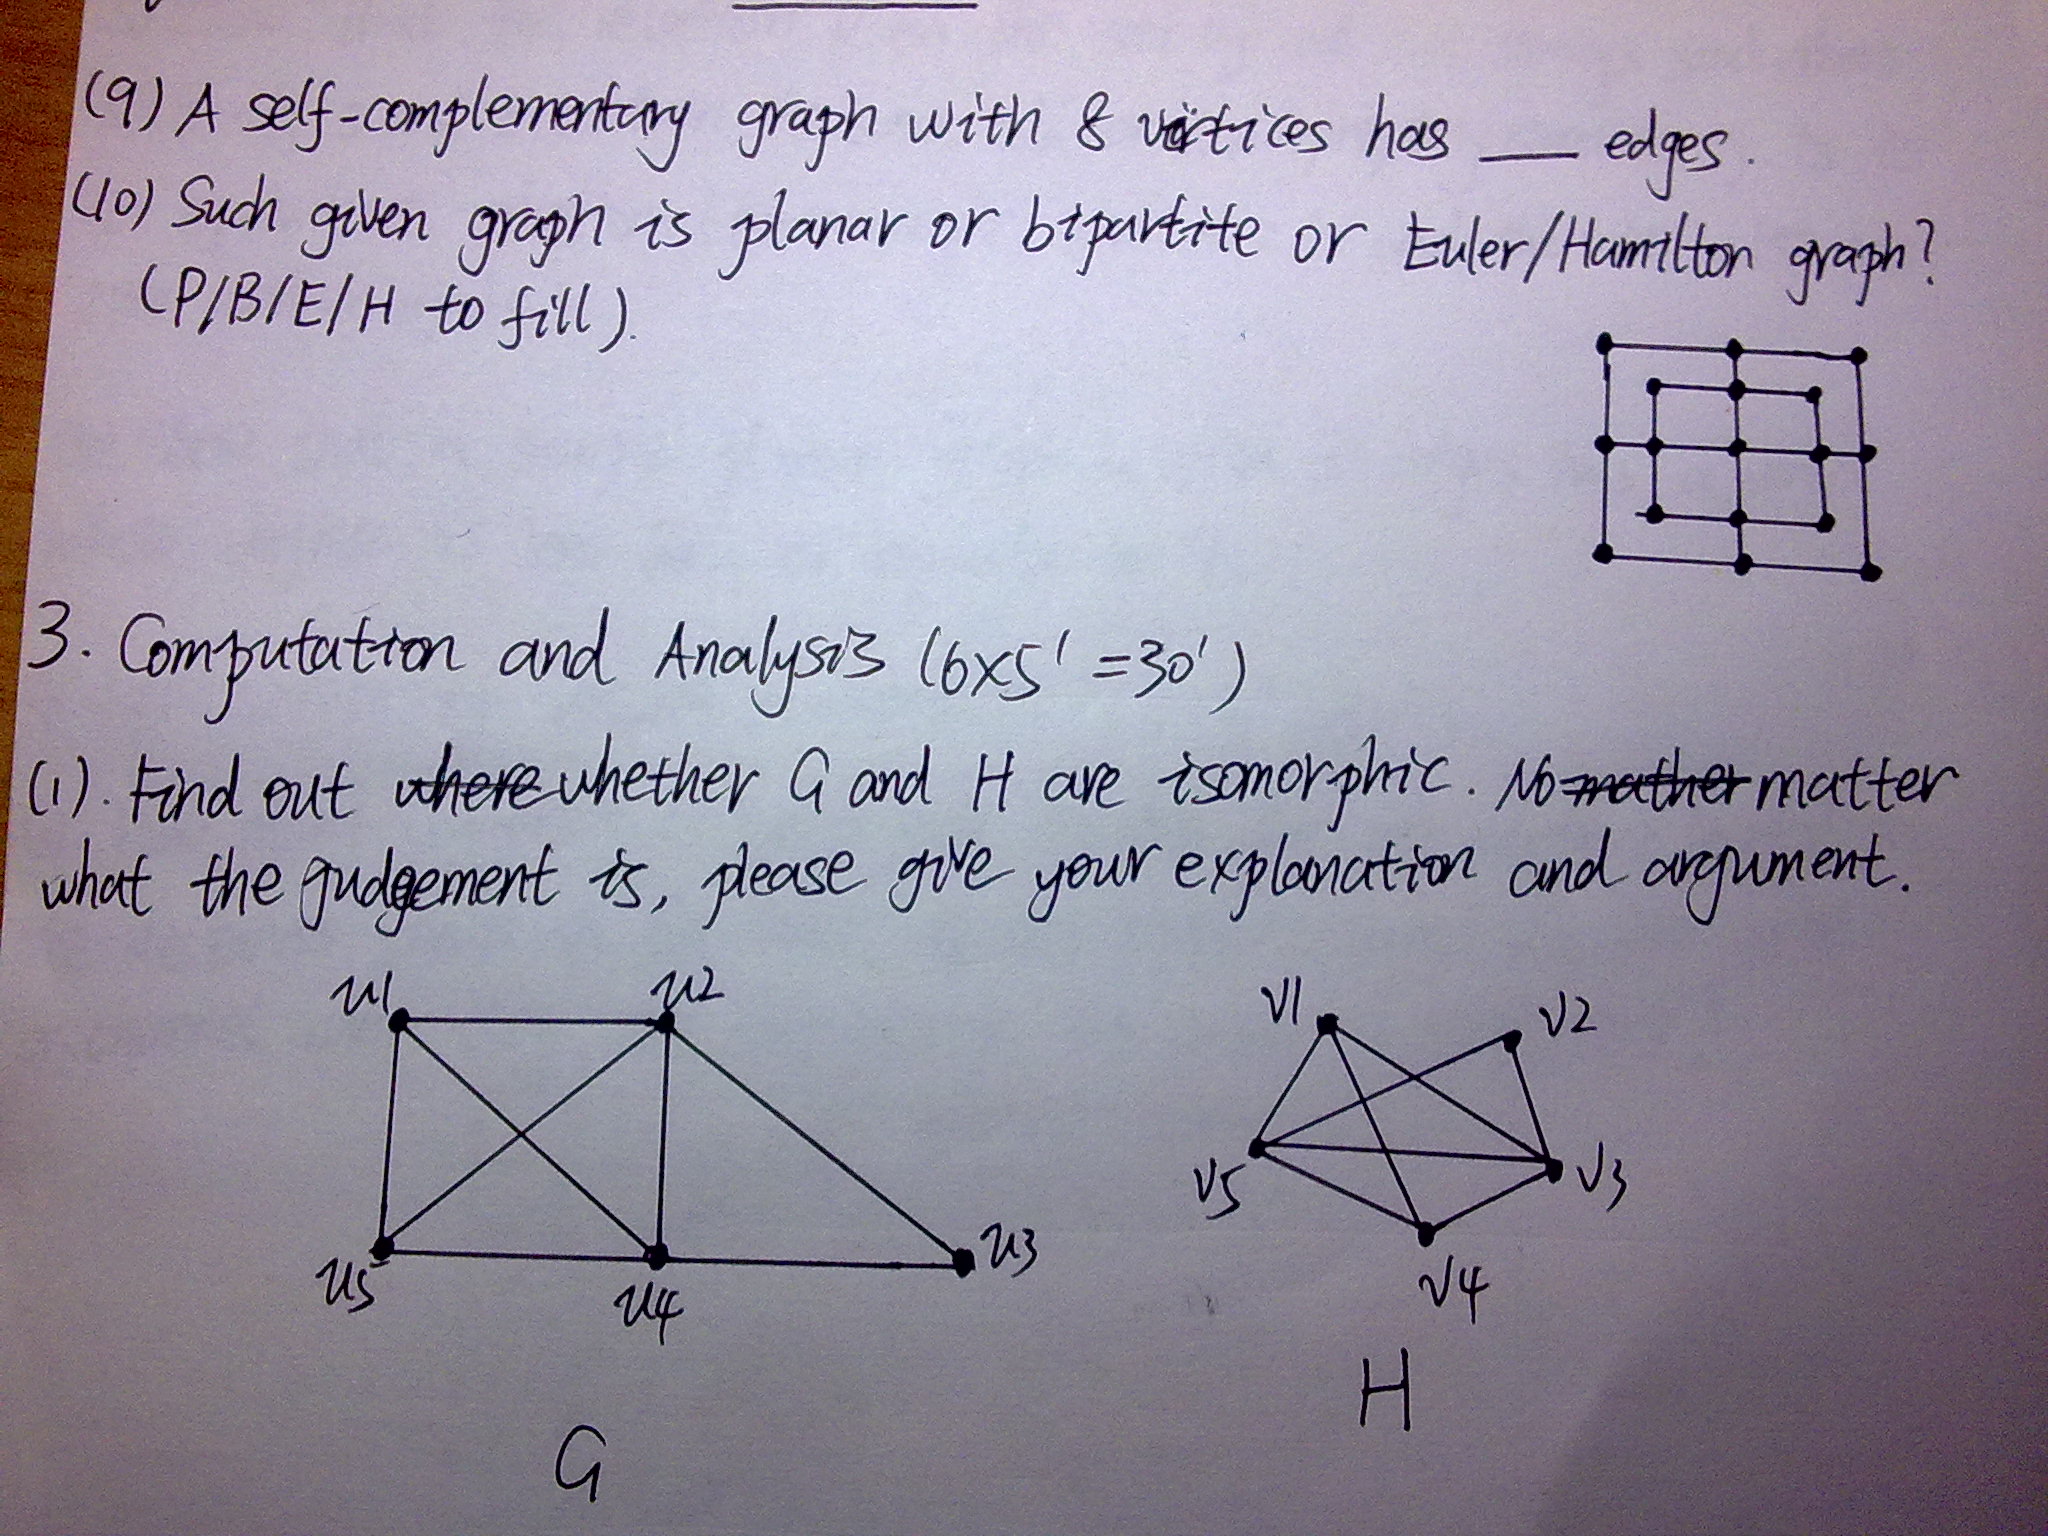 (9) A self-complementary graph with 8 vertices has ___ edges.
(10) Such given graph is planar or bipartite or Euler/Hamilton graph?
(P/B/E/H to fill).
3. Computation and Analysis (6×5' =30')
(1). Find out where whether G and H are isomorphic. No mather matter
what the judgement is, please give your explanation and argument.
u1 u2 v1 v2
v5 v3
u5 u4 u3 v4
H
G